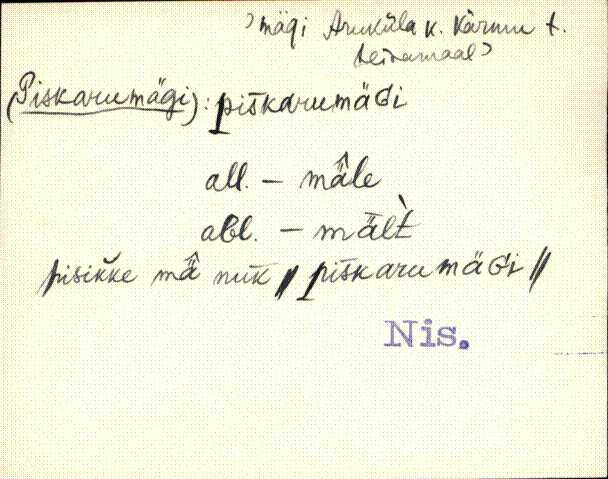 >mägi Aruküla k. Kärmu t.
teinamaal>
(Piskarumägi): piskarumäGi
all. – mä̂le
abl. – mält̀
pisikke mä̂ nuk // piskarumäGi //
Nis.